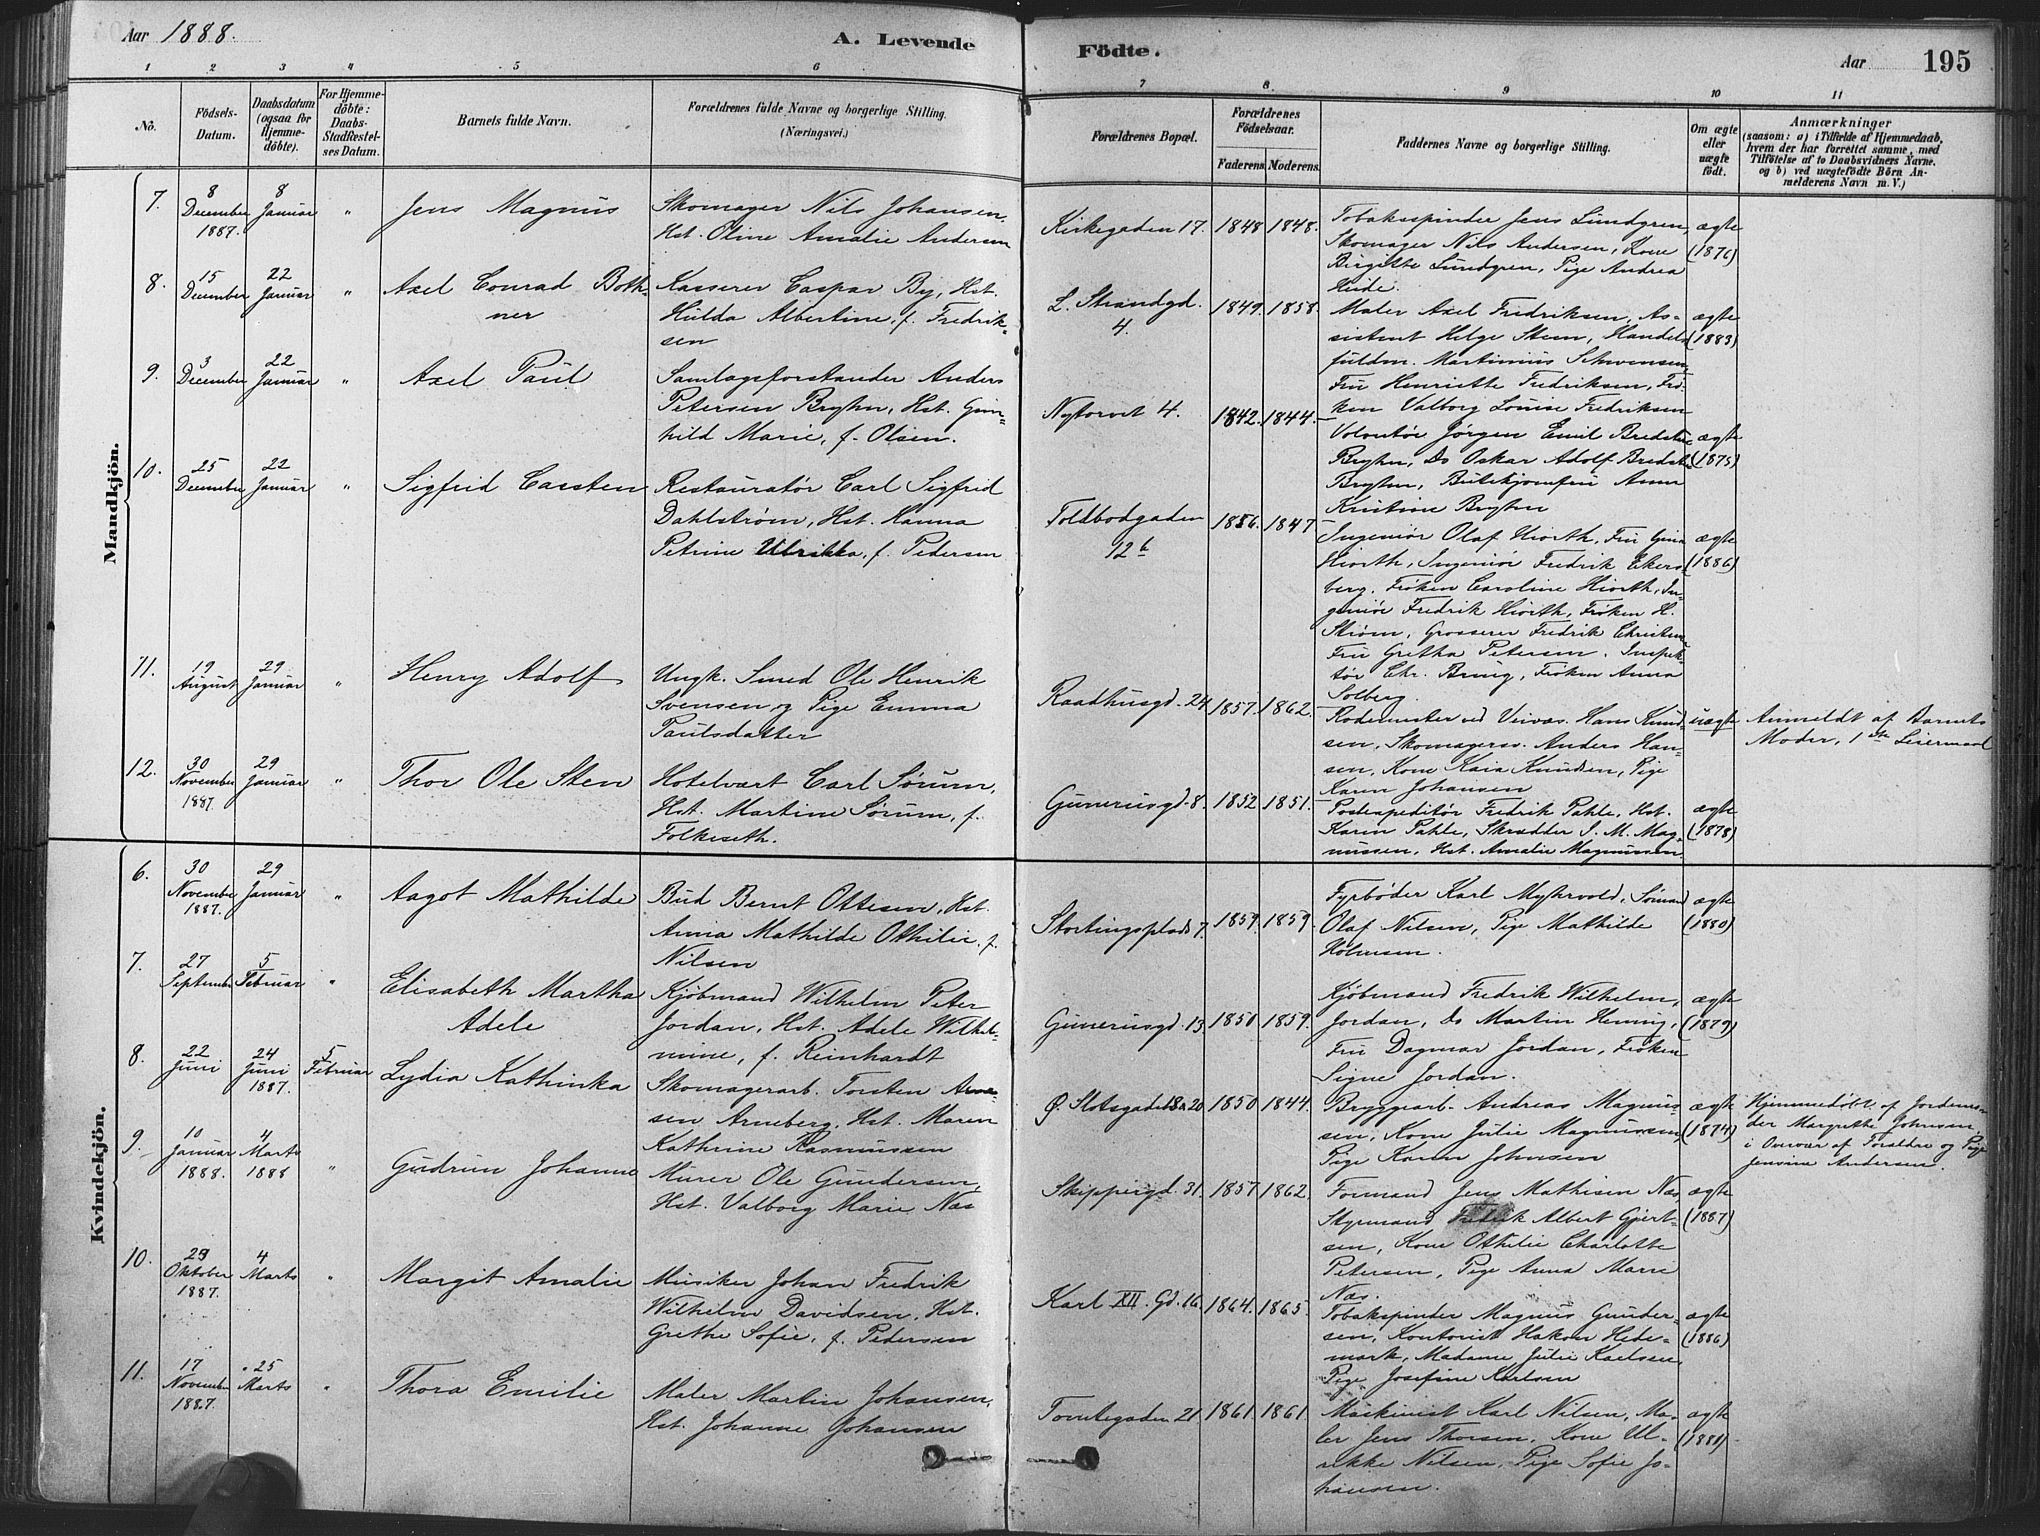 Aar 1888.
A. Levende
1 2 3 4 5 6
No.
Födsels-
Datum.
Daabsdatum
(ogsaa for
Hjemme-
döbte).
For Hjemme-
döbte:
Daabs-
Stadfæstel-
ses Datum.
Barnets fulde Navn.
Forældrenes fulde Navne og borgerlige Stilling.
(Næringsvei.)
Mandkjön.
7. 8 December 1887. 8 Januar „ Jens Magnus
Skomager Nils Johansen,
Hst. Oline Amalie Andersen
8. 15 December 22 Januar „ Axel Conrad Both-
ner
Kasserer Caspar By, Hst.
Hulda Albertine, f. Fredrik-
sen
9. 3 December 22 Januar „ Axel Paul
Samlagsforstander Anders
Petersen Bryhn, Hst. Gun-
hild Marie, f. Olsen.
10. 25 December 22 Januar „ Sigfrid Carsten
Restauratør Carl Sigfrid
Dahlstrøm, Hst. Hanna
Petrine Ulrikka, f. Pedersen
11. 19 August 29 Januar „ Henry Adolf
Ungk. Smed Ole Henrik
Svensen og Pige Emma
Paulsdatter
12. 30 November 1887. 29 Januar „ Thor Ole Sten
Hotelvært Carl Sørum,
Hst. Martine Sørum, f.
Folkeseth.
Kvindekjön.
6. 30 November 1887. 29 Januar „ Aagot Mathilde
Bud Bernt Ottesen, Hst.
Anna Mathilde Othilie, f.
Nilsen
7. 27 September 5 Februar „ Elisabeth Martha
Adele
Kjøbmand Wilhelm Peter
Jordan, Hst. Adele Wilhel-
mine, f. Reinhardt
8. 22 Juni 24 Juni 1887. 5 Februar Lydia Kathinka
Skomagerarb. Torsten Arne-
sen Arneberg, Hst. Maren
Kathrine Rasmussen
9. 10 Januar 1888. 4 Marts 1888 „ Gudrun Johanne
Murer Ole Gundersen,
Hst. Valborg Marie Næs
10. 29 Oktober 1887. 4 Marts „ Margit Amalie
Musiker Johan Fredrik
Wilhelm Davidsen, Hst.
Grethe Sofie, f. Pedersen
11. 17 November 1887. 25 Marts „ Thora Emilie
Maler Martin Johansen,
Hst. Johanne Johansen
Födte.
Aar 195
7 8 9 10 11
Forældrenes Bopæl.
Forældrenes
Födselsaar.
Faderens. Moderens.
Faddernes Navne og borgerlige Stilling.
Om ægte
eller
uægte
födt.
Anmærkninger
(saasom: a) i Tilfælde af Hjemmedaab,
hvem der har forrettet samme, med
Tilföielse af to Daabsvidners Navne.
og b) ved uægtefödte Börn An-
melderens Navn m. V.)
Kirkegaden 17. 1848 1848.
Tobaksspinder Jens Lundgren, ægte
Skomager Nils Andersen, Kone (1876)
Birgitte Lundgren, Pige Andrea
Hude.
L. Strandgd. 4. 1849. 1858.
Maler Axel Fredriksen, As- ægte
sistent Helge Steen, Handels- (1883)
fuldm. Martinius Schwensen,
Fru Henriette Fredriksen, Frø-
ken Valborg Louise Fredriksen
Nytorvet 4. 1842. 1844.
Volontør Jørgen Emil Bredstu ægte
Bryhn, Do Oskar Adolf Bredstu (1875)
Bryhn, Butikjomfru Anna
Kristine Bryhn
Toldbodgaden 12 b 1856. 1847
Ingeniør Olaf Hiorth, Fru Gina ægte
Hiorth, Ingeniør Fredrik Ekers- (1886)
berg, Frøken Caroline Hiorth, In-
geniør Fredrik Hiorth, Frøken H.
Strøm, Grosserer Fredrik Christensen
Fru Gretha Petersen, Inspek-
tør Chr. Bruuj, Frøken Anna
Solberg.
Raadhusgd. 24 1857. 1862.
Rodemester ved Veivæs. Hans Knud- uægte
sen, Skomagersv. Anders Han-
sen, Kone Kaia Knudsen, Pige
Karen Johansen
Anmeldt af Barnets
Moder, 1ste Leiermaal
Gunerusgd. 8. 1852 1851.
Postexpeditør Fredrik Pahle, Hst. ægte
Karen Pahle, Skrædder I. M. Mag- (1878)
nussen, Hst. Amalie Magnussen.
Stortingsplads 7. 1859. 1859.
Fyrbøder Karl Myhrvold, Sømand ægte
Olaf Nilsen, Pige Mathilde (1880)
Holmsen.
Gunerusgd. 13 1850 1859.
Kjøbmand Fredrik Wilhelm, ægte
Jordan, Do Martin Hennig, (1879)
Fru Dagmar Jordan, Frøken
Signe Jordan.
Ø. Slotsgade 18 a 20 1850 1844.
Bryggearb. Andreas Magnus- ægte
sen, Kone Julie Magnussen (1874)
Pige Karen Johnsen
Hjemmedøbt af Jordemo-
der Margrethe Johnsen,
i Overvær af Forældre og Pige
Jensine Andersen.
Skippergd. 31. 1857 1862.
Formand Jens Mathisen Næs, ægte
Styrmand Fredrik Albert Gjert- (1887)
sen, Kone Othilie Charlotte
Petersen, Pige Anna Marie
Næs.
Karl XII. Gd. 16. 1864. 1865.
Tobakspinder Magnus Gunder- ægte
sen, Kontorist Hakon Hede- (1886)
mark, Madame Julie Karlsen,
Pige Josefine Karlsen
Tomtegaden 21. 1861. 1861.
Maskinist Karl Nilsen, Ma- ægte
ler Jens Thorsen, Kone Ul- (1881)
rikke Nilsen, Pige Sofie Jo-
hansen.